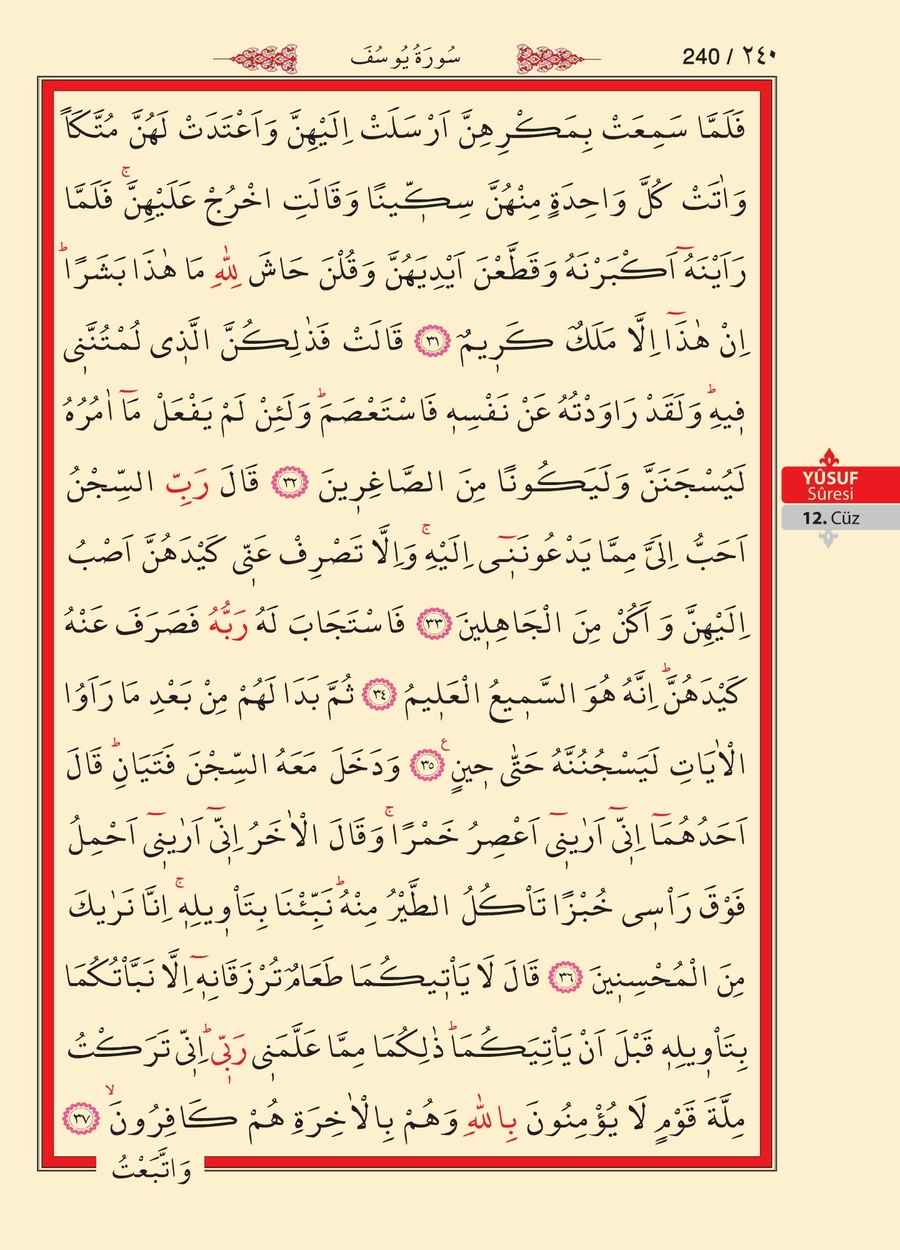 سُورَةُ يُوسُفَ
240 / ٢٤٠
فَلَمَّا سَمِعَتْ بِمَكْرِهِنَّ اَرْسَلَتْ اِلَيْهِنَّ وَاَعْتَدَتْ لَهُنَّ مُتَّكَـًٔا
وَاٰتَتْ كُلَّ وَاحِدَةٍ مِنْهُنَّ سِكّ۪ينًا وَقَالَتِ اخْرُجْ عَلَيْهِنَّۚ فَلَمَّا
رَاَيْنَهُٓ اَكْبَرْنَهُ وَقَطَّعْنَ اَيْدِيَهُنَّ وَقُلْنَ حَاشَ لِلّٰهِ مَا هٰذَا بَشَرًاۜ
اِنْ هٰذَٓا اِلَّا مَلَكٌ كَر۪يمٌ ﴿٣١﴾ قَالَتْ فَذٰلِكُنَّ الَّذ۪ى لُمْتُنَّن۪ى
ف۪يهِۜ وَلَقَدْ رَاوَدْتُهُ عَنْ نَفْسِه۪ فَاسْتَعْصَمَۜ وَلَئِنْ لَمْ يَفْعَلْ مَٓا اٰمُرُهُ
لَيُسْجَنَنَّ وَلَيَكُونًا مِنَ الصَّاغِر۪ينَ ﴿٣٢﴾ قَالَ رَبِّ السِّجْنُ
اَحَبُّ اِلَىَّ مِمَّا يَدْعُونَن۪ٓى اِلَيْهِۚ وَاِلَّا تَصْرِفْ عَنّ۪ى كَيْدَهُنَّ اَصْبُ
اِلَيْهِنَّ وَ اَكُنْ مِنَ الْجَاهِل۪ينَ ﴿٣٣﴾ فَاسْتَجَابَ لَهُ رَبُّهُ فَصَرَفَ عَنْهُ
كَيْدَهُنَّۜ اِنَّهُ هُوَ السَّم۪يعُ الْعَل۪يمُ ﴿٣٤﴾ ثُمَّ بَدَا لَهُمْ مِنْ بَعْدِ مَا رَاَوُا
الْاٰيَاتِ لَيَسْجُنُنَّهُ حَتّٰى ح۪ينٍ ع ﴿٣٥﴾ وَدَخَلَ مَعَهُ السِّجْنَ فَتَيَانِۜ قَالَ
اَحَدُهُمَٓا اِنّ۪ٓى اَرٰين۪ٓى اَعْصِرُ خَمْرًاۚ وَقَالَ الْاٰخَرُ اِنّ۪ٓى اَرٰين۪ٓى اَحْمِلُ
فَوْقَ رَاْس۪ى خُبْزًا تَاْكُلُ الطَّيْرُ مِنْهُۜ نَبِّئْنَا بِتَاْو۪يلِه۪ۚ اِنَّا نَرٰيكَ
مِنَ الْمُحْسِن۪ينَ ﴿٣٦﴾ قَالَ لَا يَاْت۪يكُمَا طَعَامٌ تُرْزَقَانِه۪ٓ اِلَّا نَبَّاْتُكُمَا
بِتَاْو۪يلِه۪ قَبْلَ اَنْ يَاْتِيَكُمَاۜ ذٰلِكُمَا مِمَّا عَلَّمَن۪ى رَبّ۪ىۜ اِنّ۪ى تَرَكْتُ
مِلَّةَ قَوْمٍ لَا يُؤْمِنُونَ بِاللّٰهِ وَهُمْ بِالْاٰخِرَةِ هُمْ كَافِرُونَۙ ﴿٣٧﴾
وَاتَّبَعْتُ
YÛSUF
Sûresi
12. Cüz